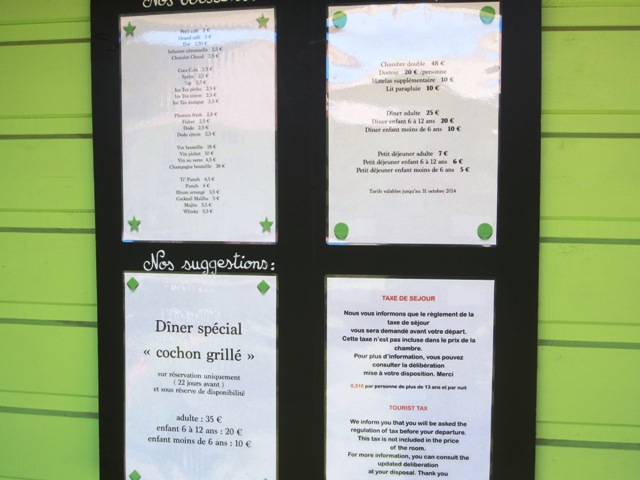 Nos boissons:
Petit café 2 €
Grand café 3 €
Thé 2,50 €
Infusion citronnelle 2,5 €
Chocolat Chaud 2,5 €
Coca-Cola 2,5 €
Sprite 2,5 €
7up 2,5 €
Ice Tea pêche 2,5 €
Ice Tea citron 2,5 €
Ice Tea mangue 2,5 €
Phoenix fruit 2,8 €
Fisher 2,5 €
Dodo 2,5 €
Dodo citron 2,5 €
Vin bouteille 18 €
Vin pichet 10 €
Vin au verre 4,5 €
Champagne bouteille 38 €
Ti' Punch 4,5 €
Punch 4 €
Rhum arrangé 3,5 €
Cocktail Malibu 5 €
Mojito 5,5 €
Whisky 5,5 €
Chambre double 48 €
Dortoir 20 € /personne
Matelas supplémentaire 10 €
Lit parapluie 10 €
Dîner adulte 25 €
Dîner enfant 6 à 12 ans 20 €
Dîner enfant moins de 6 ans 10 €
Petit déjeuner adulte 7 €
Petit déjeuner enfant 6 à 12 ans 6 €
Petit déjeuner enfant moins de 6 ans 5 €
Tarifs valables jusqu'au 31 octobre 2014
Nos suggestions:
Dîner spécial
« cochon grillé »
sur réservation uniquement
( 22 jours avant )
et sous réserve de disponibilité
adulte : 35 €
enfant 6 à 12 ans : 20 €
enfant moins de 6 ans : 10 €
TAXE DE SEJOUR
Nous vous informons que le règlement de la
taxe de séjour
vous sera demandé avant votre départ.
Cette taxe n'est pas incluse dans le prix de la
chambre.
Pour plus d'information, vous pouvez
consulter la délibération
mise à votre disposition. Merci
par personne de plus de 13 ans et par nuit
TOURIST TAX
We inform you that you will be asked the
regulation of tax before your departure.
This tax is not included in the price
of the room.
For more information, you can consult the
updated deliberation
at your disposal. Thank you